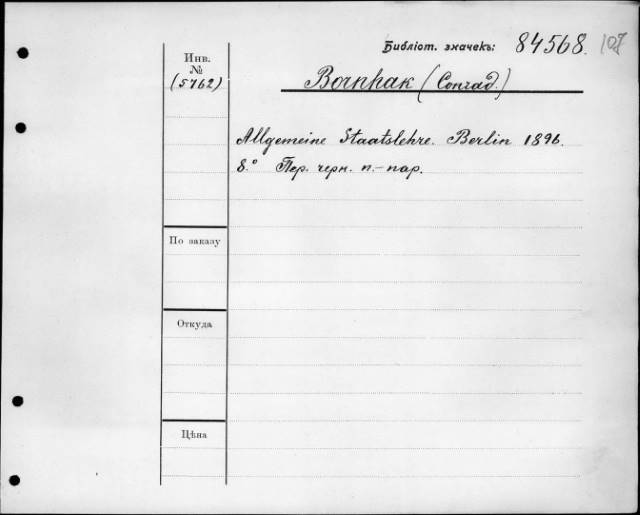 Библіот. значекъ: 84568. 107
Инв.
№
(5762)
Bornhak (Conrad.)
Allgemeine Staatslehre. Berlin 1896.
8.° Пер. черн. п.-пар.
По заказу
Откуда
Цѣна